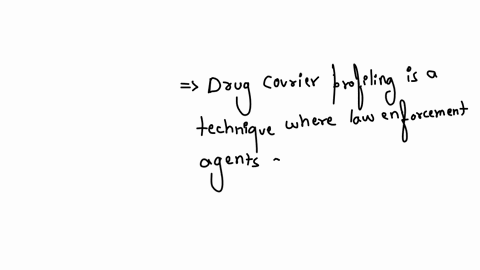 => Drug courier profeling is a
technique where law enforcement
agents -